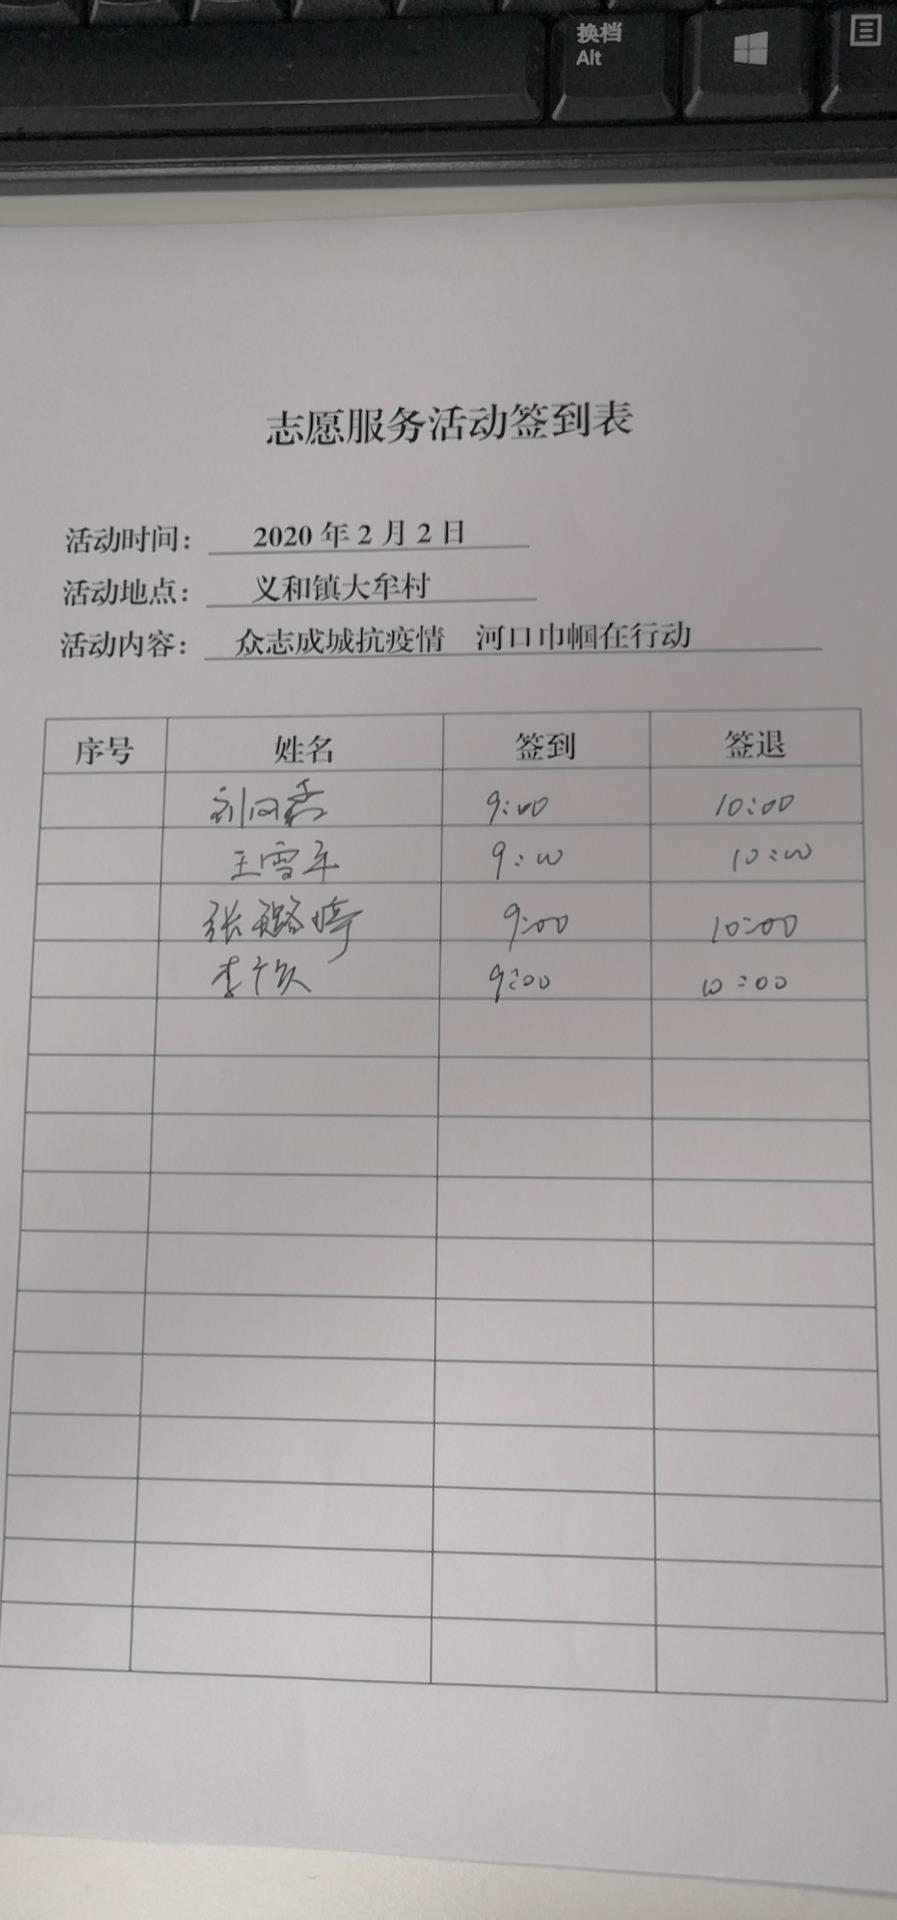 换档
Alt
志愿服务活动签到表
活动时间： 2020 年 2 月 2 日
活动地点： 义和镇大牟村
活动内容： 众志成城抗疫情 河口巾帼在行动
序号 姓名 签到 签退
刘 9:00 10:00
王雪军 9:00 10:00
张璐琦 9:00 10:00
李 9:00 10:00